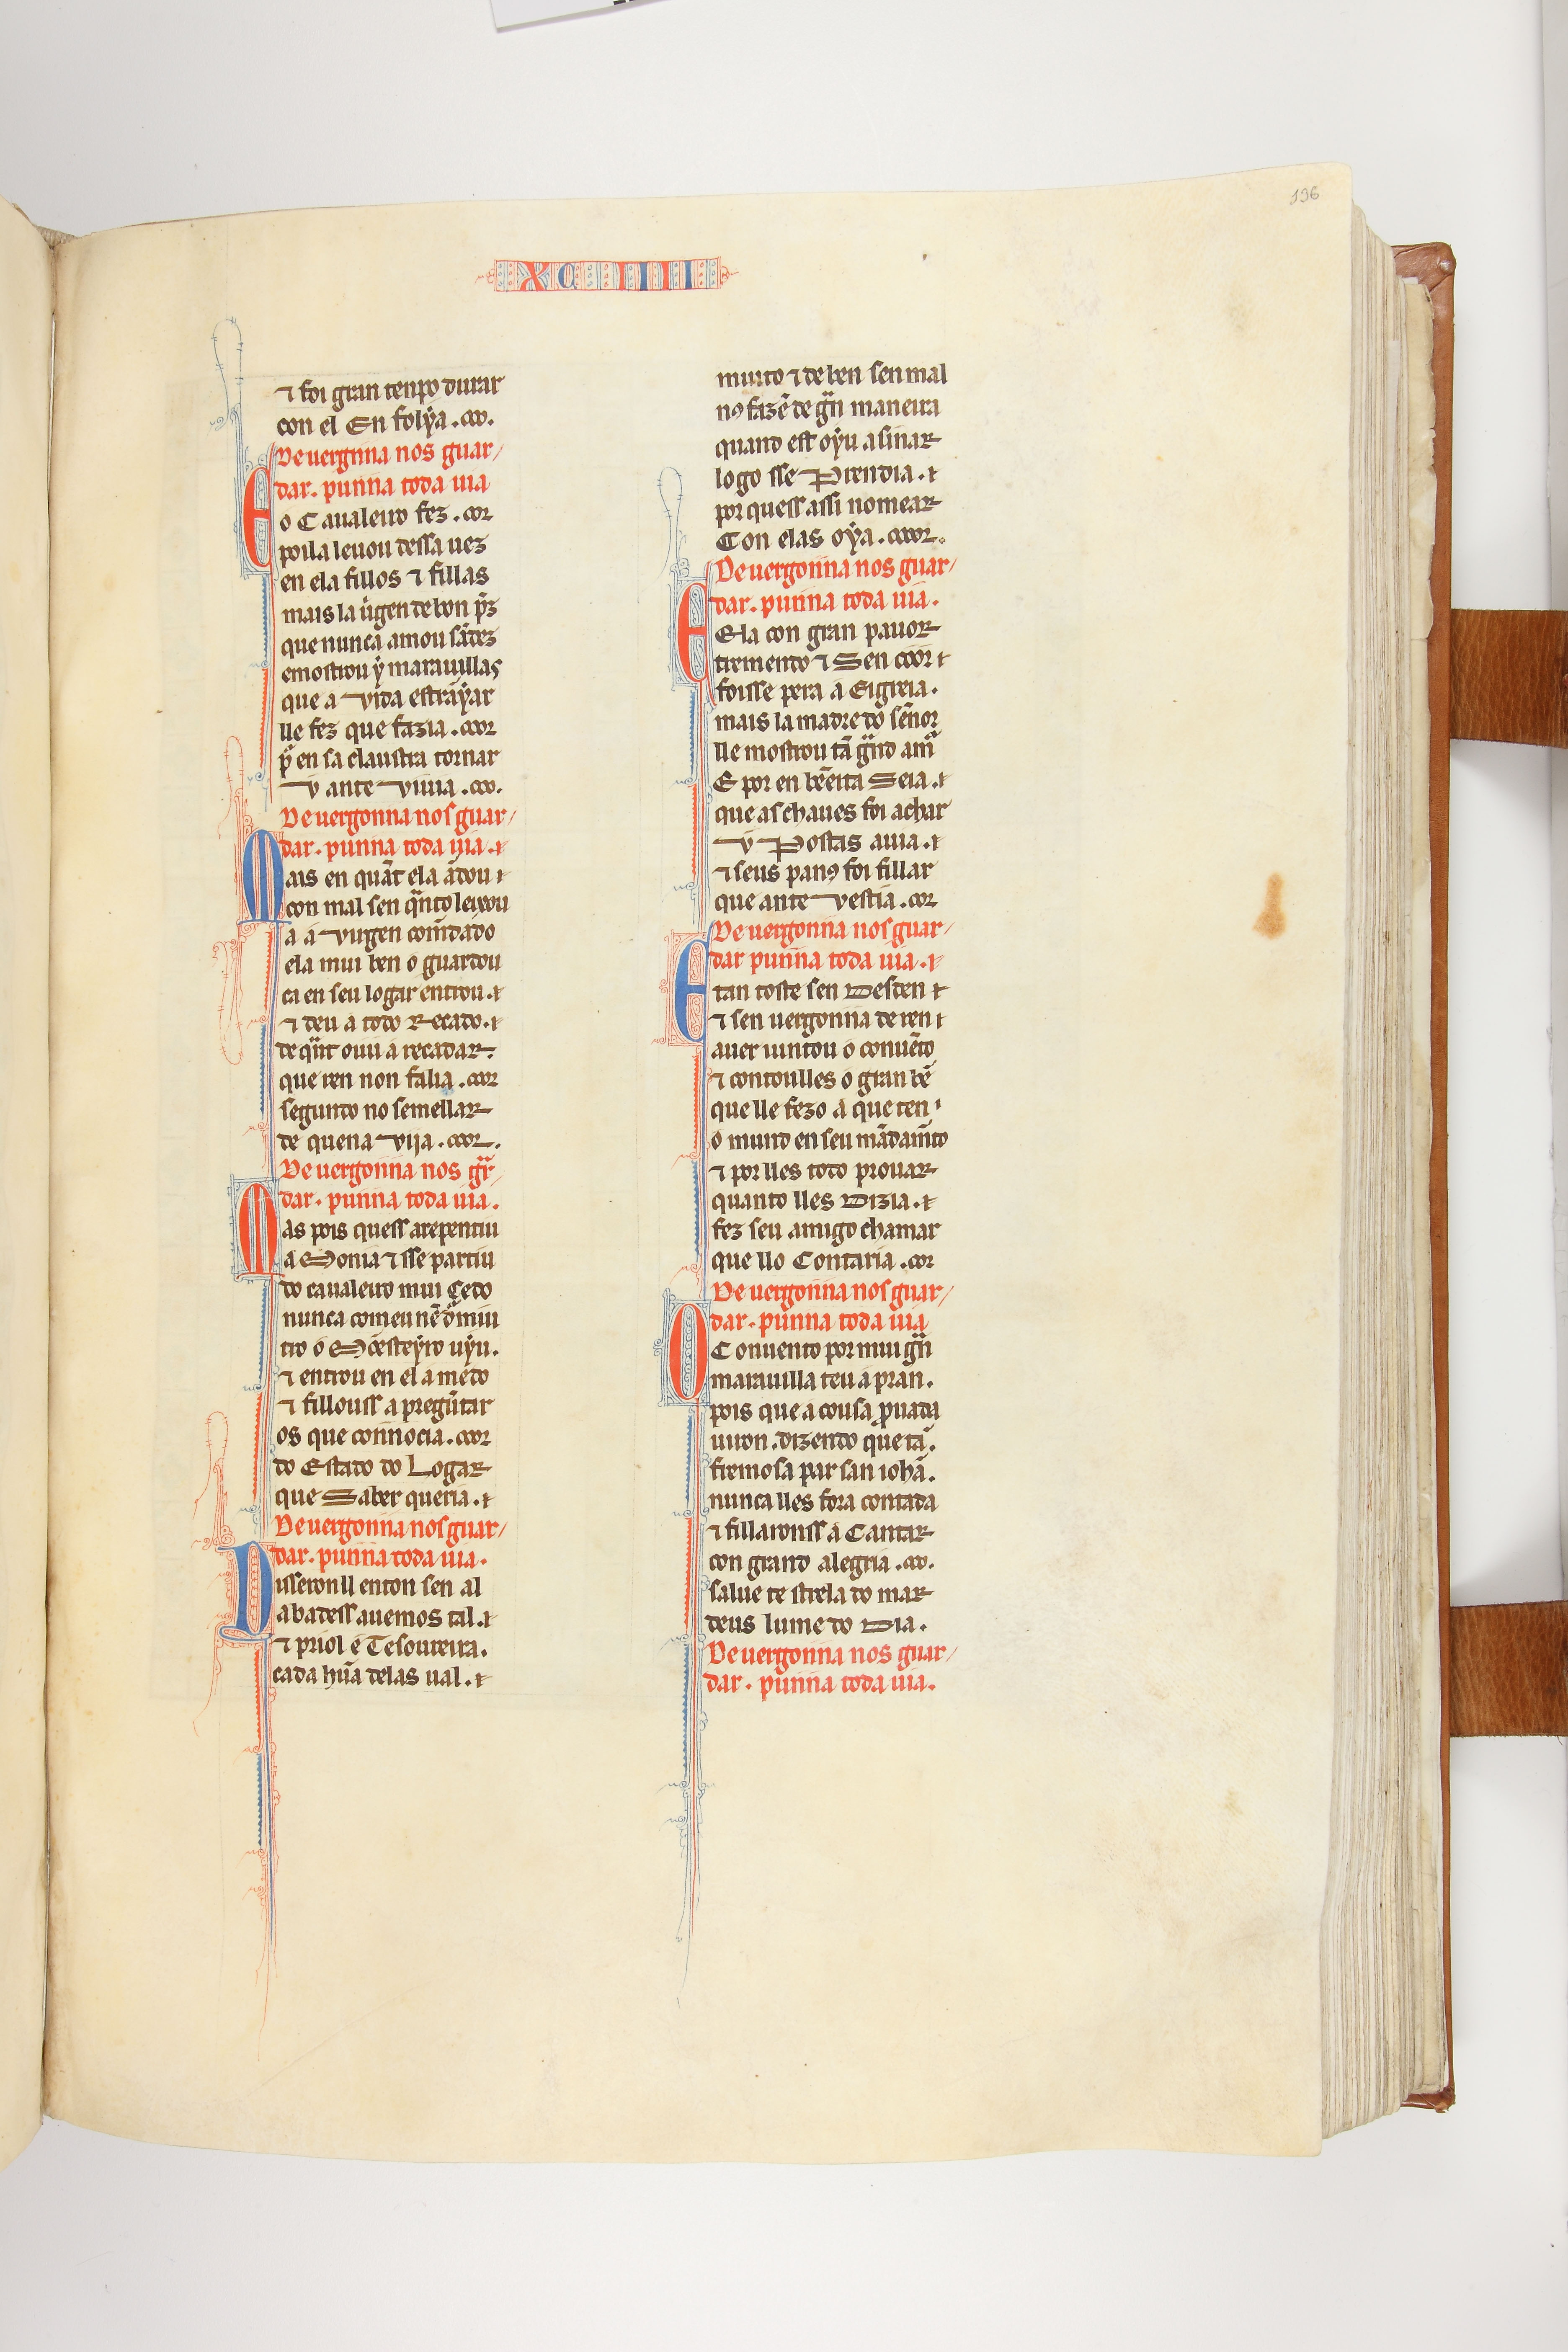 136
XCIIII
⁊ foi gran tenpo durar
con el En folẏa.
De uergnna nos guar/
dar. punna toda uia
E o Caualeiro fez.
poila leuou dessa uez
en ela fillos ⁊ fillas
mais la u̇gen de bon p̃z
que nunca amou sãdez
emostrou ẏ marauillas
que a vida estrãẏar
lle fez que fazia.
p̃ en sa claustra tornar
v ante viuia.
De uergonna nos guar/
dar. punna toda uia.
Mais en quãt ela ãdou
con mal sen q̃nto leixou
a á virgen com̃dado
ela mui ben o guardou
ca en seu logar entrou.
⁊ deu a todo Recado.
de q̃nt ouu á recadar.
que ren non falia.
segundo no semellar
de quena viia.
De uergonna nos gr̃/
dar. punna toda uia.
Mas pois quess arepentiu
a Monia ⁊ sse partiu
do caualeiro mui çedo
nunca comeu nẽ dormiu
tro ó Mõesteẏro uẏu.
⁊ entrou en el a medo
⁊ fillouss a pregũtar
os que connocia.
do Estado do Logar
que Saber queria.
De uergonna nos guar/
dar. punna toda uia.
Disseronll enton sen al
abadess auemos tal.
⁊ priol é Tesoureira.
cada hũa delas ual.
muito ⁊ de ben sen mal
nꝯ fazẽ de gr̃n maneira
quand est oẏu a sinar
logo sse Prendia.
por quess assi nomear
Con elas oẏa.
De uergonna nos guar/
dar. punna toda uia.
E Ela con gran pauor
tremendo ⁊ Sen coor
foisse pera á Eigreia.
mais la madre do sẽnor
lle mostrou tã gr̃nd am̃
E por en bẽeita Seia.
que as chaues foi achar
v Postas auia.
⁊ seus panꝯ foi fillar
que ante vestia.
De uergonna nos guar/
dar punna toda uia.
E tan toste sen Desden
⁊ sen uergonna de ren
auer iuntou o conuẽto
⁊ contoulles o gran bẽ
que lle fezo a que ten
o mund en seu mãdam̃to
⁊ por lles todo prouar
quanto lles Dizia.
fez seu amigo chamar
que llo Contaria.
De uergonna nos guar/
dar. punna toda uia
O Conuento por mui gr̃n
marauilla teu á pran.
pois que a cousa ꝓuada
uiron. dizendo que tã.
fremosa par san iohã.
nunca lles fora contada
⁊ fillaronss á Cantar
con grand alegria.
salue te strela do mar
deus lume do Dia.
De uergonna nos guar/
dar. punna toda uia.